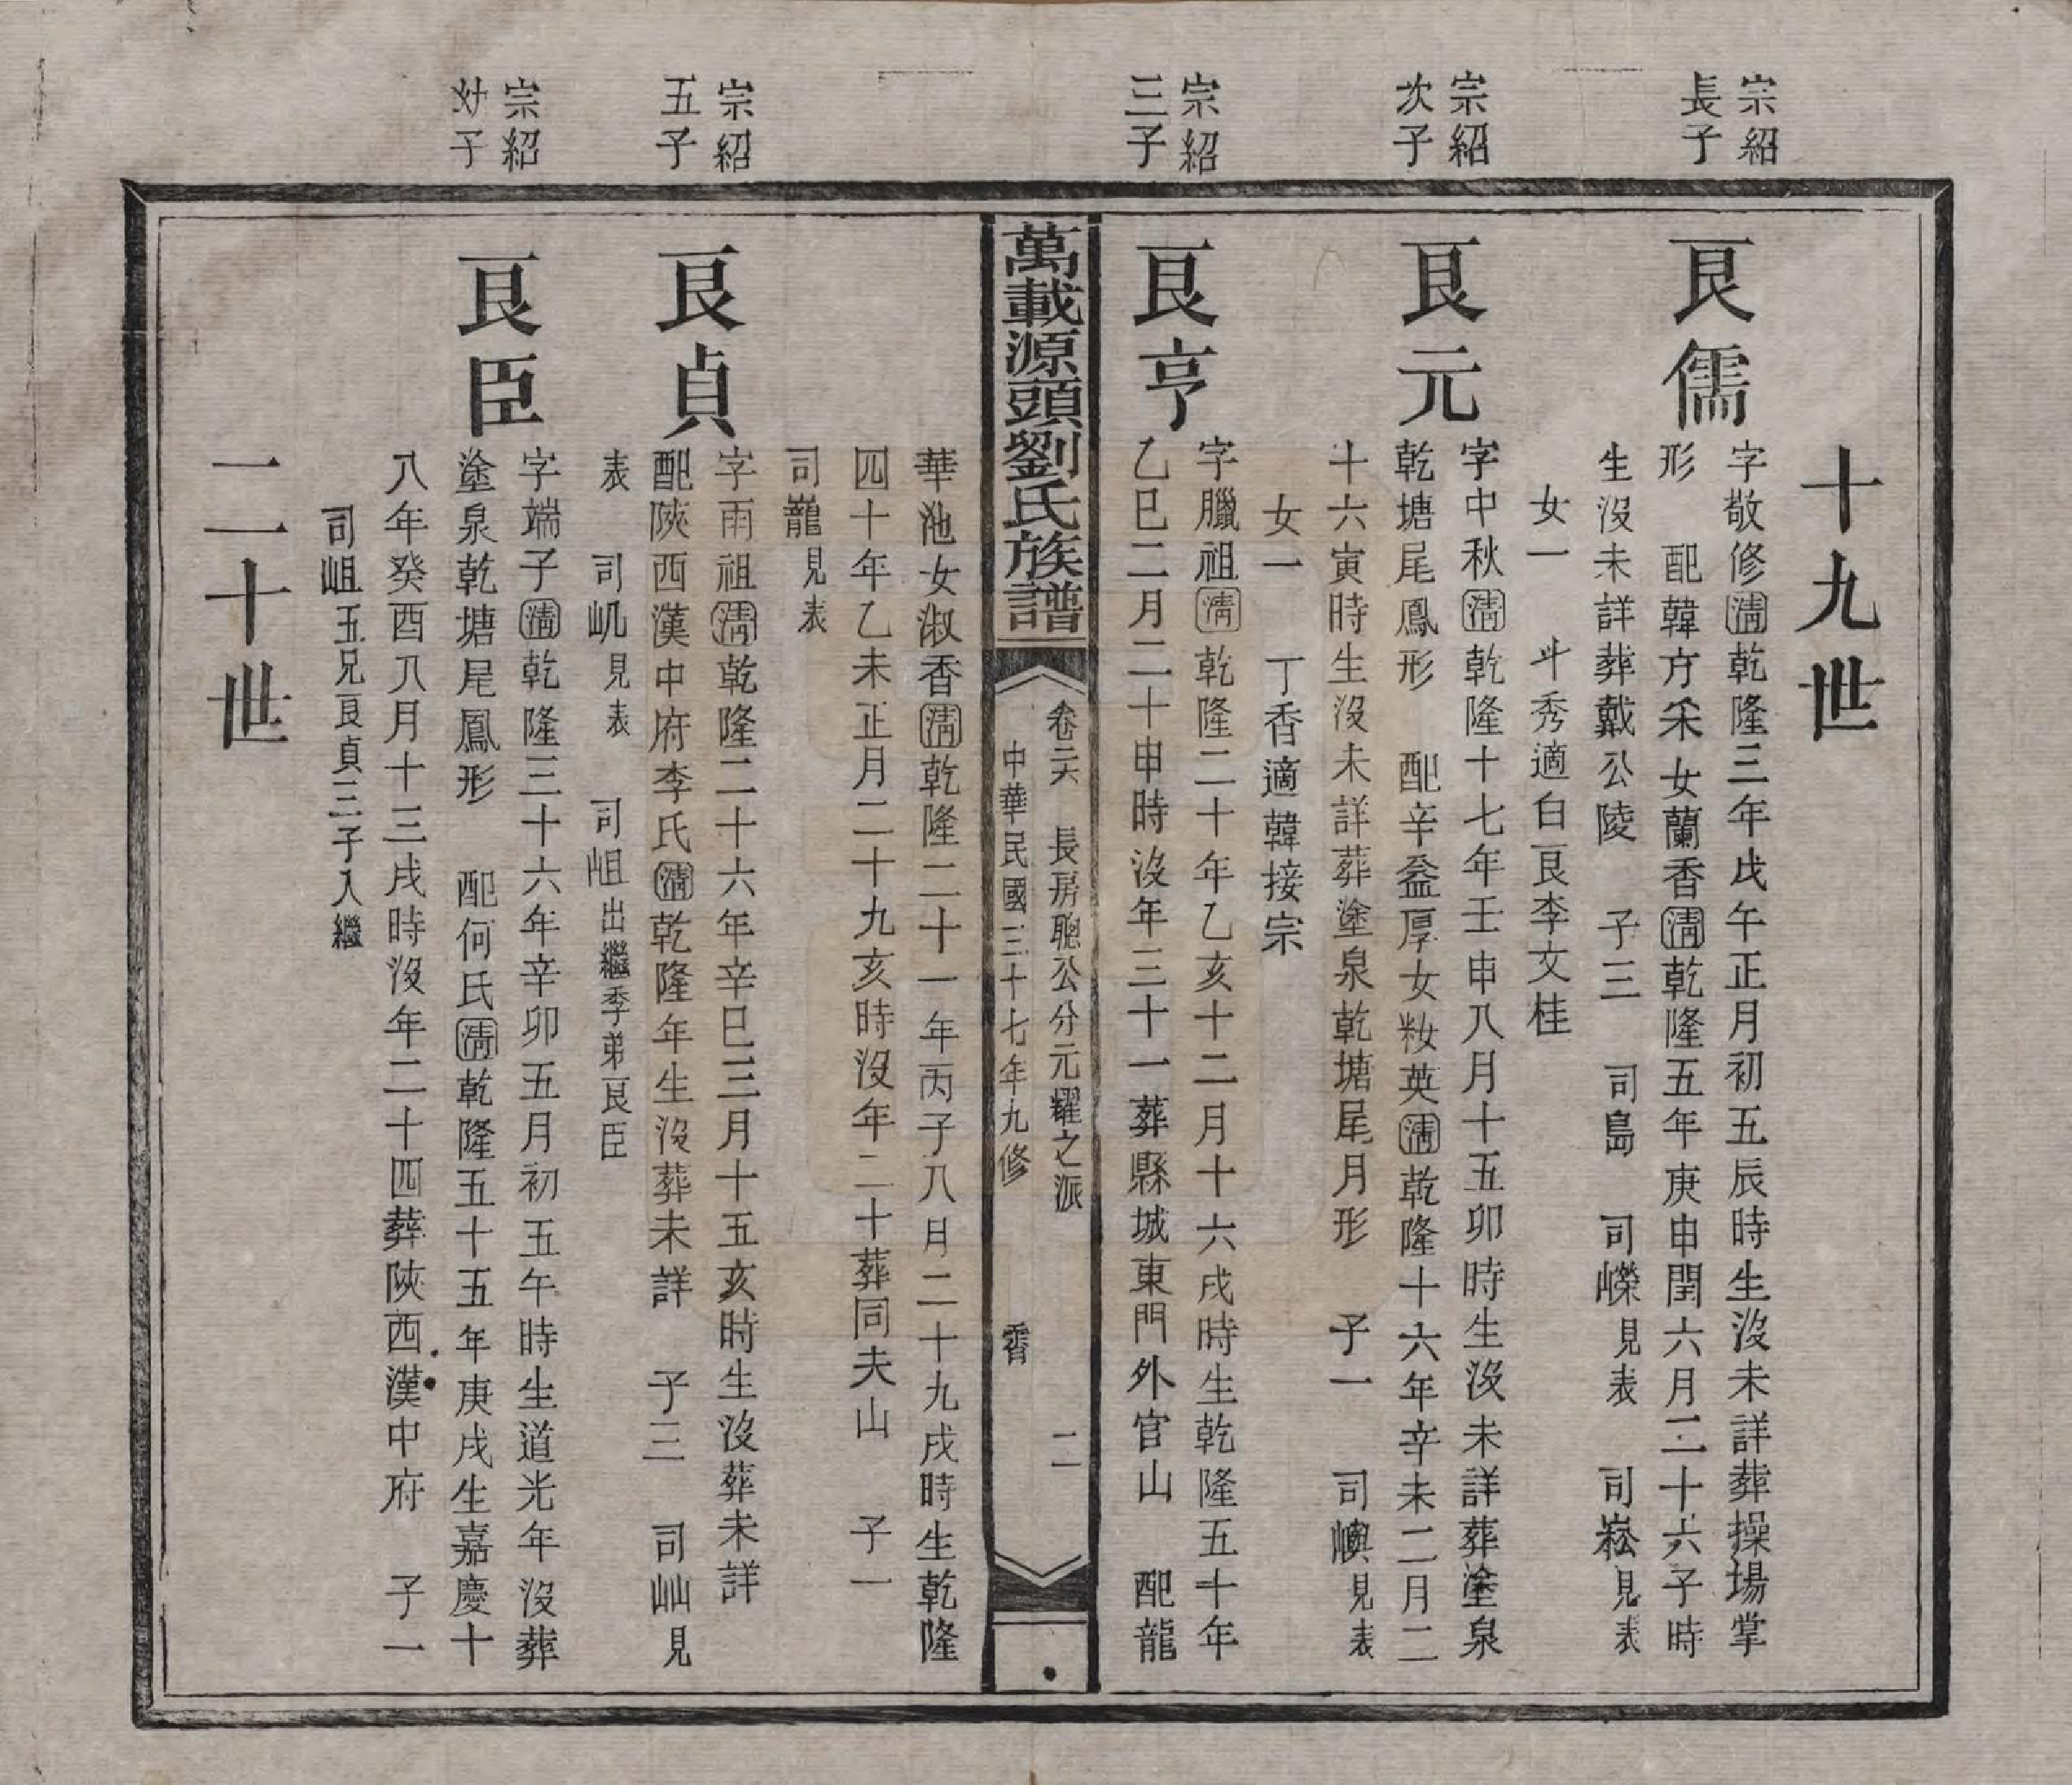 十九世
宗紹
長子
良儒
字敬修清乾隆三年戊午正月初五辰時生沒未詳葬操場掌
形　配韓方采女蘭香清乾隆五年庚申閏六月二十六子時
生沒未詳葬戴公陵　子三　司島　司嶸見表　司崧見表
女一　斗秀適白良李文桂
宗紹
次子
良元
字中秋清乾隆十七年壬申八月十五卯時生沒未詳葬塗泉
乾塘尾鳳形　配辛益厚女籹英清乾隆十六年辛未二月二
十六寅時生沒未詳葬塗泉乾塘尾月形　子一　司嶼見表
女一　丁香適韓接宗
宗紹
三子
良亨
字臘祖清乾隆二十年乙亥十二月十六戌時生乾隆五十年
乙巳二月二十申時沒年三十一葬縣城東門外官山　配龍
萬載源頭劉氏族譜
卷二六　長房聰公分元耀之派　二
中華民國三十七年九修
華池女淑香清乾隆二十一年丙子八月二十九戌時生乾隆
四十年乙未正月二十九亥時沒年二十葬同夫山　子一
司巃見表
宗紹
五子
良貞
字雨祖清乾隆二十六年辛巳三月十五亥時生沒葬未詳
配陝西漢中府李氏清乾隆年生沒葬未詳　子三　司屾見
表　司屼見表　司岨出繼季弟良臣
宗紹
㓜子
良臣
字端子清乾隆三十六年辛卯五月初五午時生道光年沒葬
塗泉乾塘尾鳳形　配何氏清乾隆五十五年庚戌生嘉慶十
八年癸酉八月十三戌時沒年二十四葬陝西漢中府　子一
司岨五兄良貞三子入繼
二十世